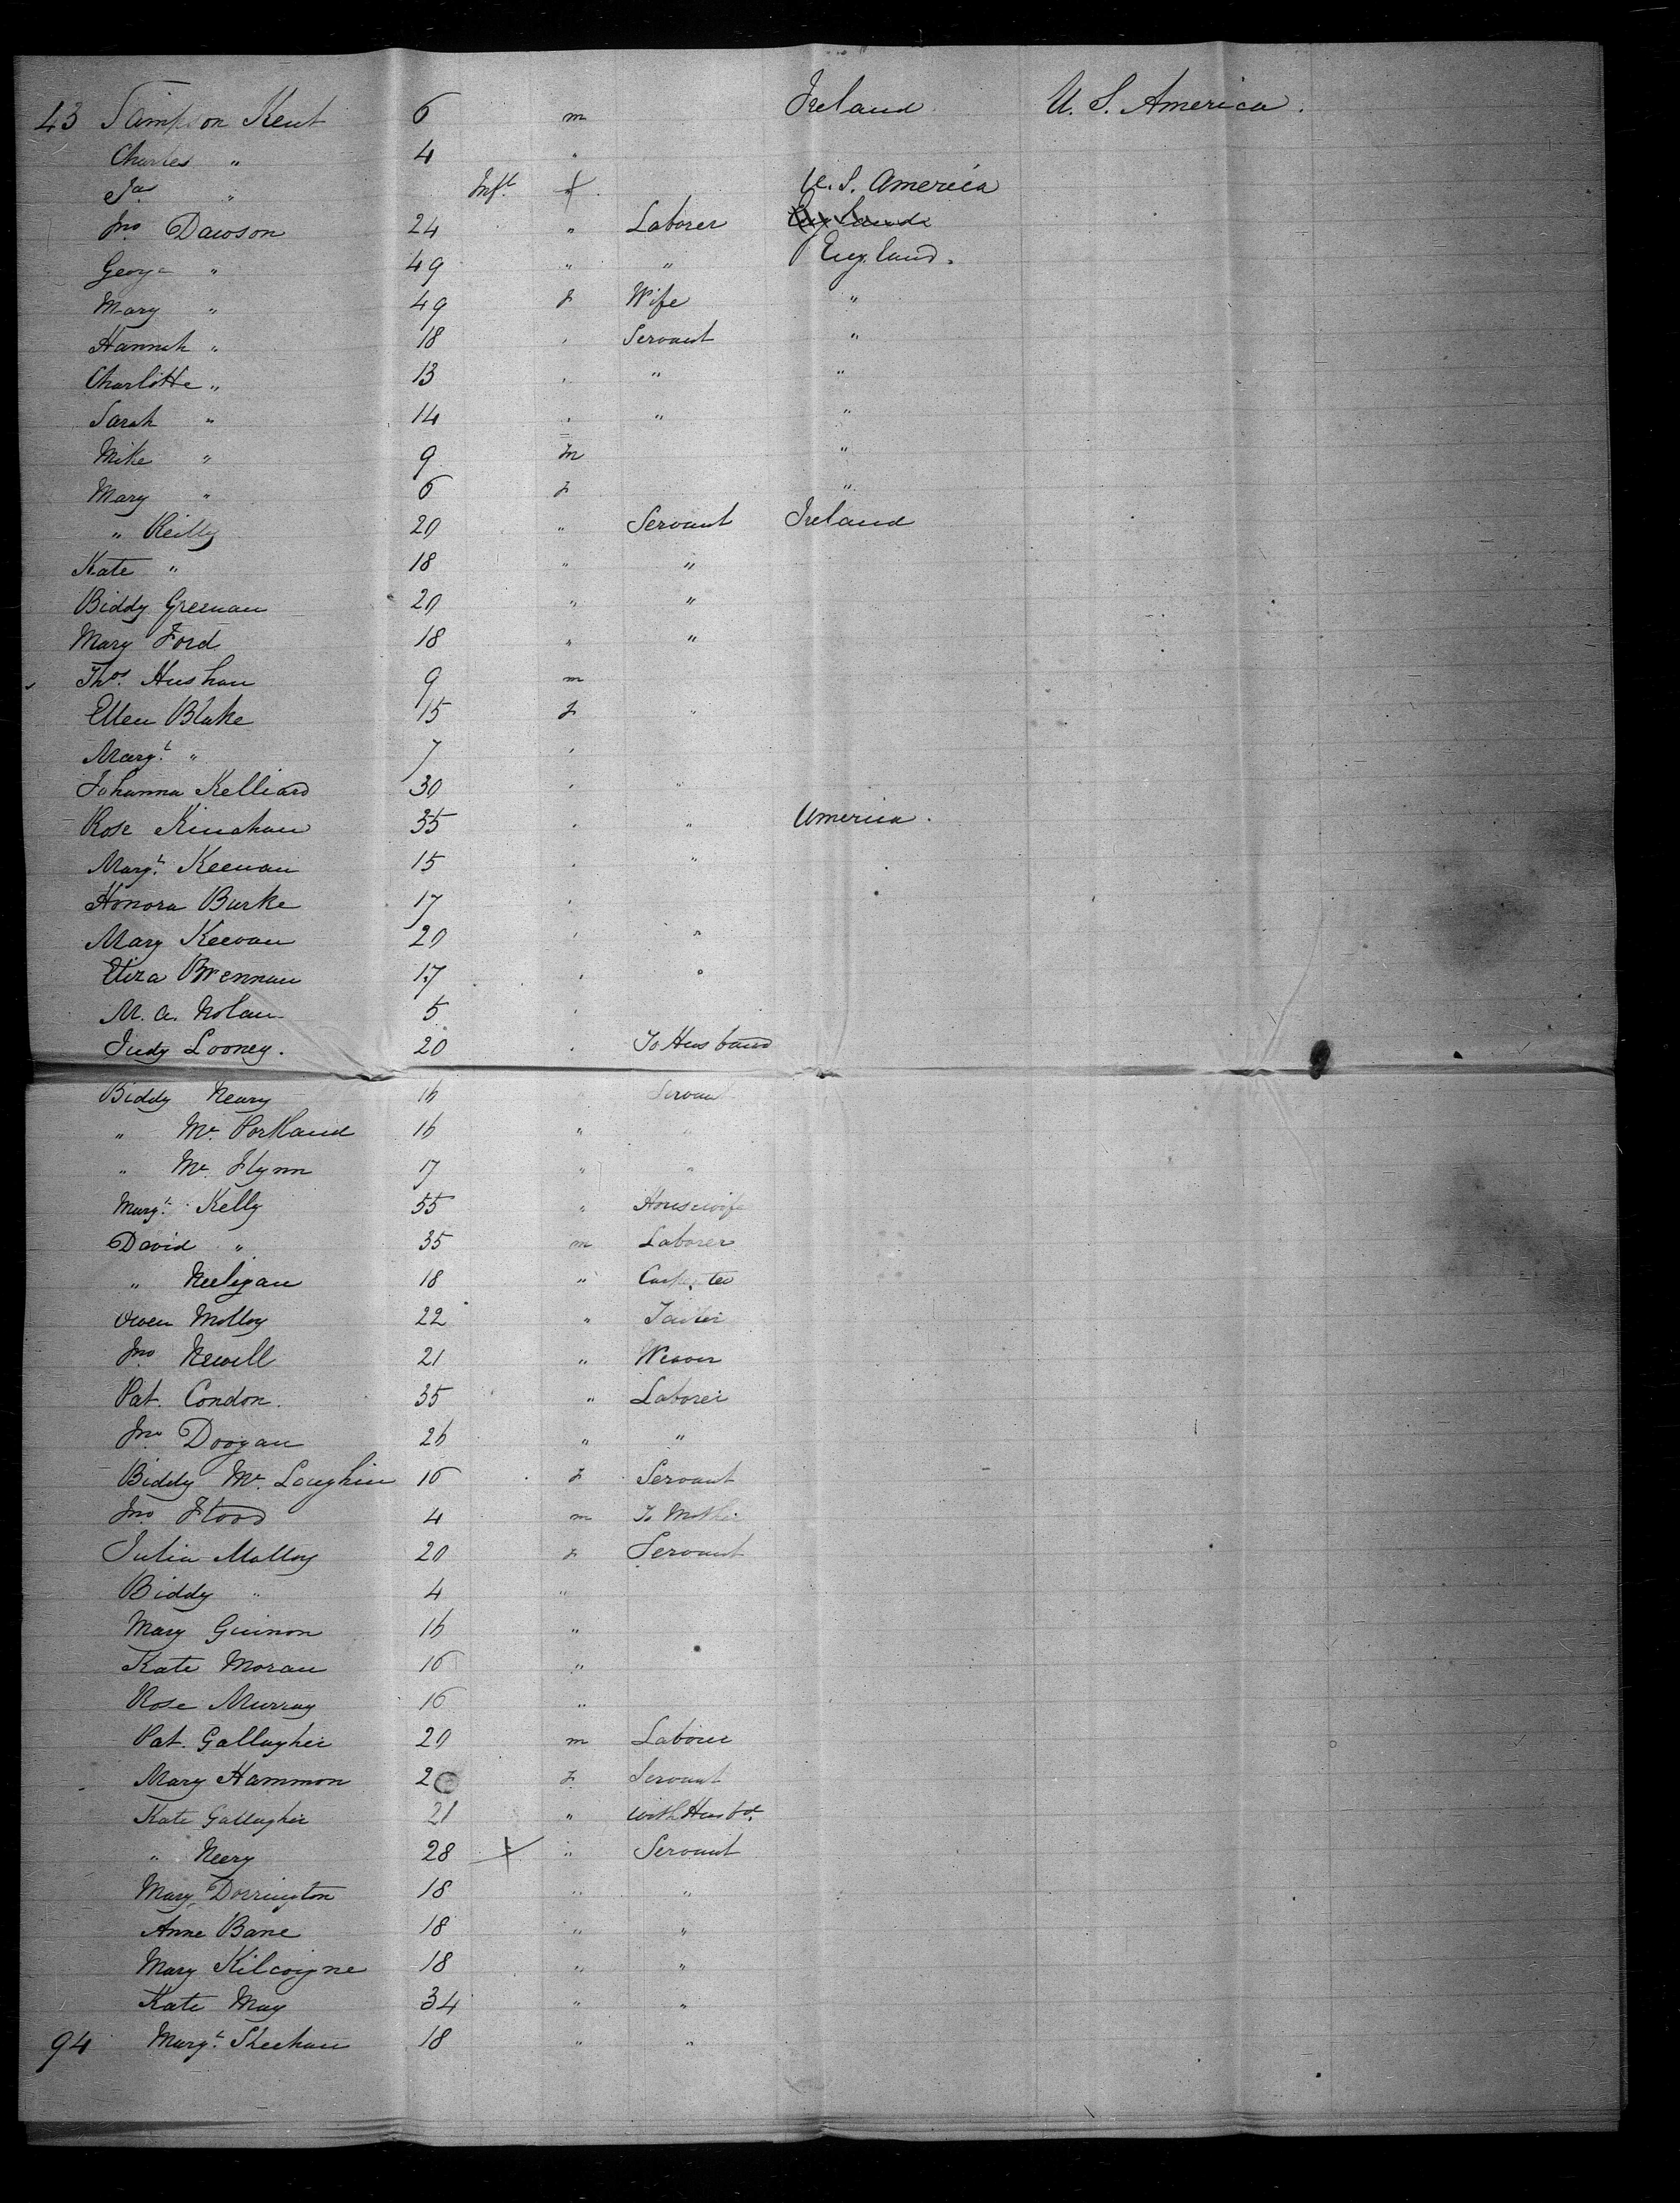 43 Sampson Kent 6 m Ireland U. S. America.
Charles " 4 "
Jas " Inft. + U. S. America
Jno Dawson 24 " Laborer
George " 49 " " England.
Mary " 49 f Wife "
Hannah " 18 " Servant "
Charlotte " 13 " " "
Sarah " 14 " " "
Mike " 9 m "
Mary " 6 f "
" Reilly 20 " Servant Ireland
Kate " 18 " "
Biddy Greenan 20 " "
Mary Ford 18 " "
Thos. Hushan 9 m
Ellen Blake 15 f "
Margt. " 7 "
Johanna Kelliard 30 " "
Rose Kinahan 35 " " America.
Margt. Keenan 15 " "
Honora Burke 17 "
Mary Keevan 20 " "
Eliza Brennan 17 " "
M. A. Nolan 5 "
Judy Looney. 20 " To Husband
Biddy Neary 16 " Servant
" Mc. Portland 16 " "
" Mc. Flynn 17 " "
Margt. Kelly 55 " Housewife
David " 35 m Laborer
" Neeligan 18 "
Owen Molloy 22 " Tailor
Jno Newell 21 " Weaver
Pat. Condon. 35 " Laborer
Jno Doogan 26 " "
Biddy Mc. Loughlin 16 f Servant
Jno Flood 4 m To Mother
Julia Molloy 20 f Servant
Biddy " 4 "
Mary Guinon 16 "
Kate Moran 16 "
Rose Murray 16 "
Pat. Gallagher 20 m Laborer
Mary Hammon 20 f Servant
Kate Gallagher 21 " with Husbd.
" Neery 28 + " Servant
Mary Dorrington 18 " "
Anne Bane 18 " "
Mary Kilcoigne 18 " "
Kate May 34 " "
94 Margt. Sheehan 18 " "